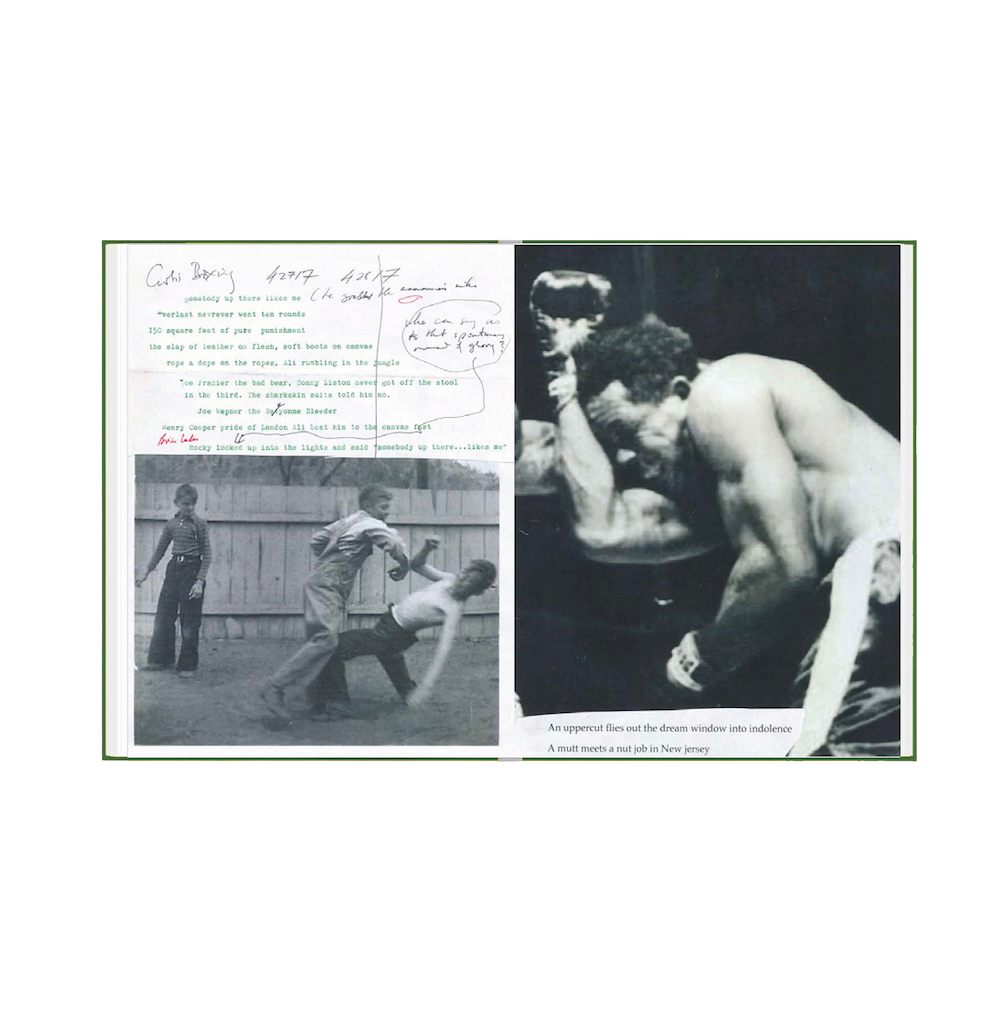 Boxing 42717 42817
Somebody up there likes me
"verlast nevrever went ten rounds
150 square feet of pure punishment
the slap of leather on flesh, soft boots on canvas
rope a dope on the ropes, Ali rumbling in the jungle
Joe Frazier the bad bear, Sonny Liston never got off the stool
in the third. The sharkskin suits told him no.
Joe Wepner the Bayonne Bleeder
Henry Cooper pride of London Ali beat him to the canvas fast
Rocky looked up into the lights and said "somebody up there...likes me"
who can say as
to that spontaneous
moment of glory?
An uppercut flies out the dream window into indolence
A mutt meets a nut job in New jersey